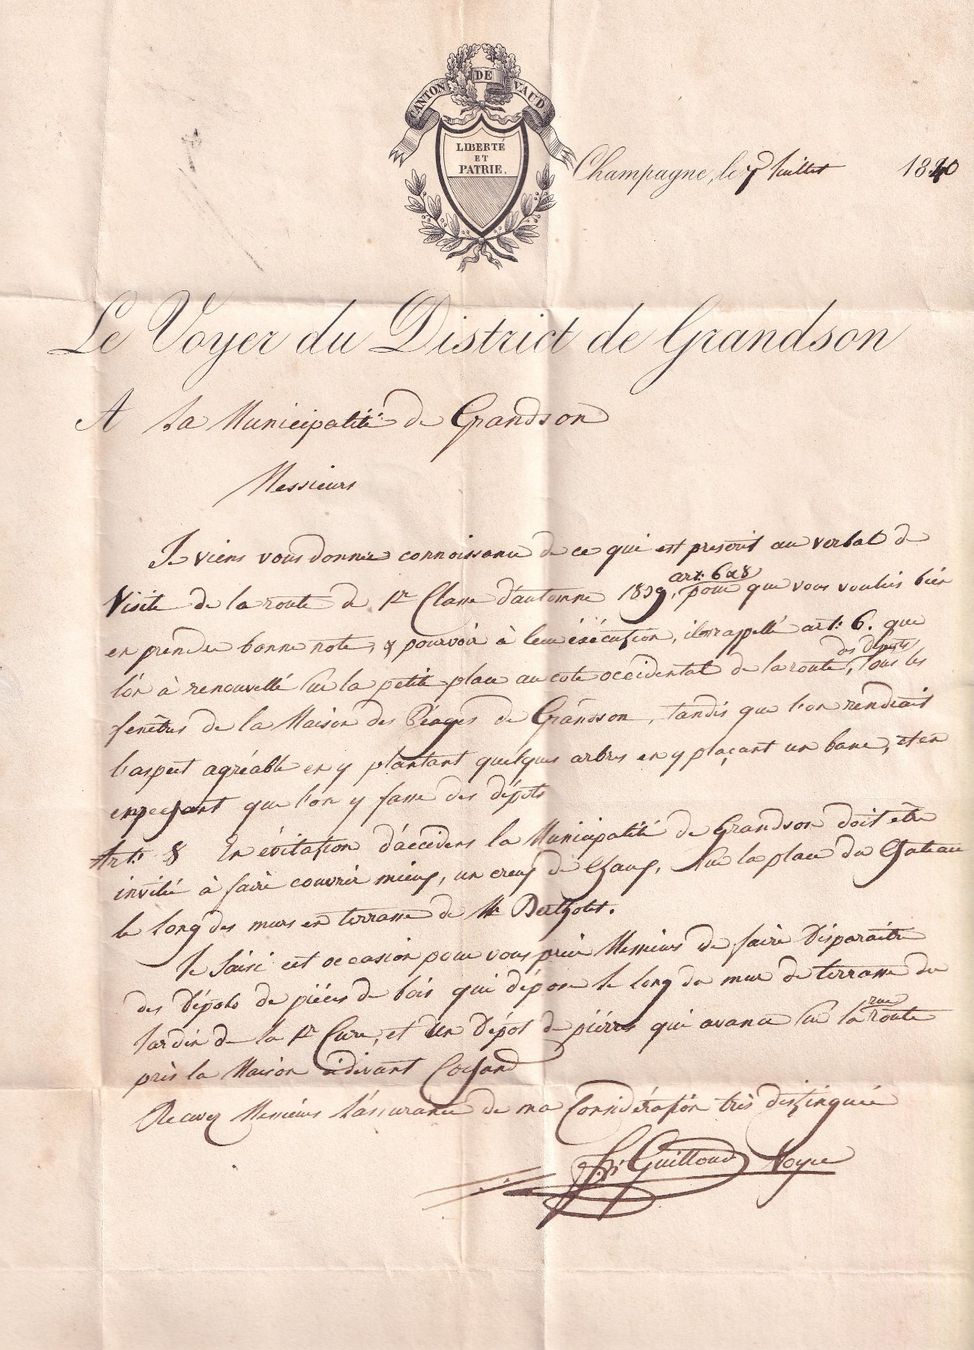 CANTON DE VAUD
LIBERTÉ
ET
PATRIE.
Champagne, le 7 Juillet 1840
Le Voyer du District de Grandson
A La Municipalité de Grandson
Messieurs
Je viens vous donner connoissance de ce qui est prescrit au verbal de
Visite de la route de 1re Classe d'automne 1839, art. 6 & 8 pour que vous vouliés bien
en prendre bonne note, & pourvoir à leur éxécution, il rappelle art. 6. que
l'on à renouvellé sur la petite place au coté occidental de la route, des dépots tous les
fenêtres de la Maison des Péages de Grandson, tandis que l'on rendrait
l'aspect agréable en y plantant quelques arbres en y plaçant un banc, et en
empechant que l'on y fasse des dépots
Art. 8 En évitation d'accidens la Municipalité de Grandson doit etre
invitée à faire couvrir mieux, un creux de chaux, sur la place du Chateau
le long des murs en terrasse de Mr
Je saisi cet occasion pour vous prier Messieurs de faire disparaitre
des dépots de pièces de bois qui dépose le long du mur de terrasse du
Jardin de la 1re Cure, et un dépot de pierres qui avance sur la rue route
près la Maison cidevant
Recevez Messieurs l'assurance de ma Considération très distinguée
Guilloud Voyer